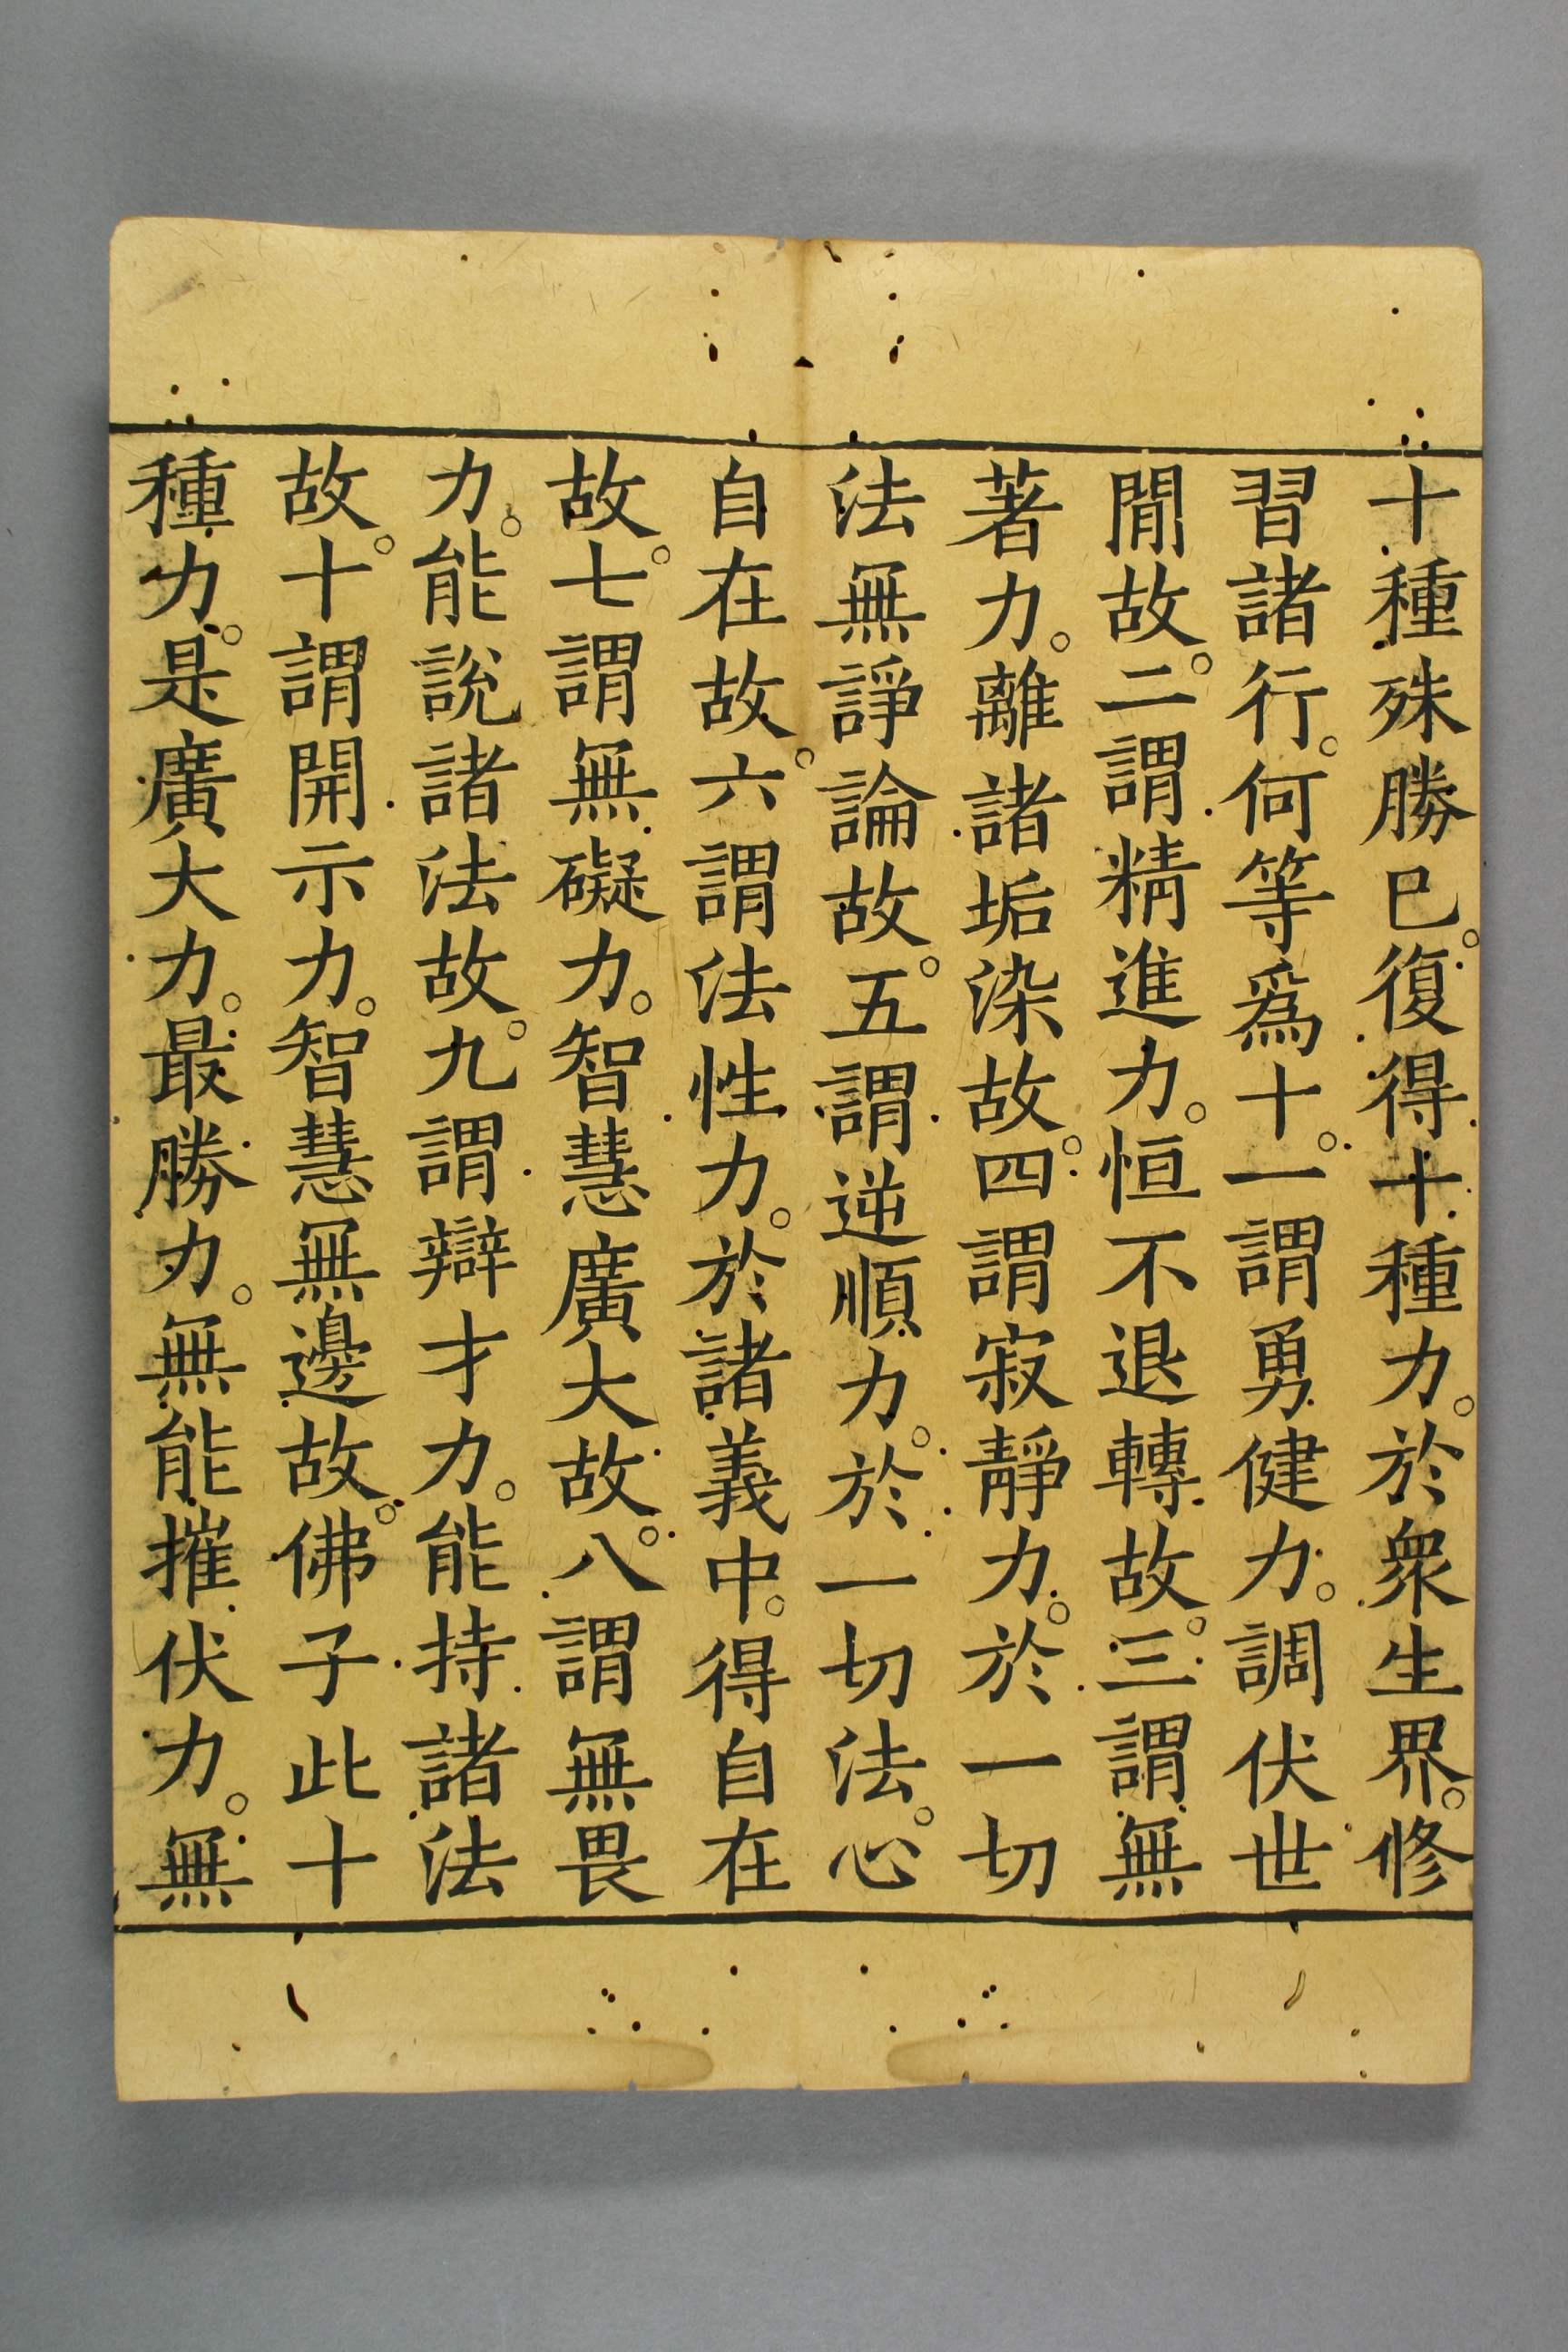 十種殊勝已。復得十種力。於衆生界。修
習諸行。何等爲十。一謂勇健力。調伏世
閒故。二謂精進力。恒不退轉故。三謂無
著力。離諸垢染故。四謂寂靜力。於一切
法無諍論故。五謂逆順力。於一切法。心
自在故。六謂法性力。於諸義中。得自在
故。七謂無礙力。智慧廣大故。八謂無畏
力。能說諸法故。九謂辯才力。能持諸法
故。十謂開示力。智慧無邊故。佛子此十
種力。是廣大力。最勝力。無能摧伏力。無